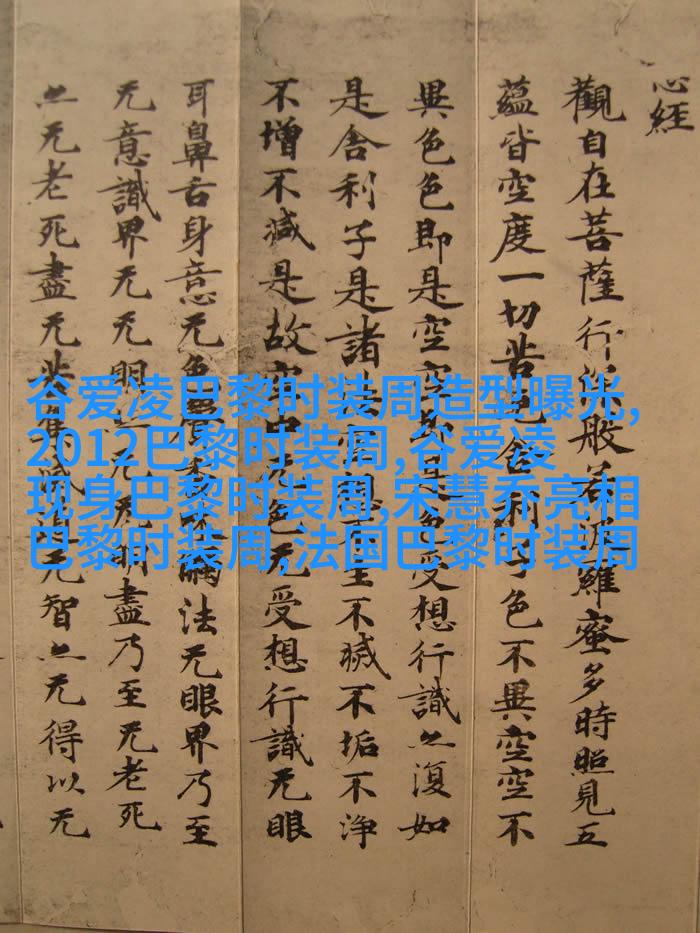 心經
觀自在菩薩行深般若波羅蜜多時照見五
蘊皆空度一切苦厄舍利子色不異空空不
異色色即是空空即是色受想行識亦復如
是舍利子是諸法空相不生不滅不垢不淨
不增不減是故空中无色无受想行識无眼
耳鼻舌身意无色聲香味觸法无眼界乃至
无意識界无无明亦无无明盡乃至无老死
亦无老死盡无苦集滅道无智亦无得以无
谷爱凌巴黎时装周造型曝光,
2012巴黎时装周,谷爱凌
现身巴黎时装周,宋慧乔亮相
巴黎时装周,法国巴黎时装周